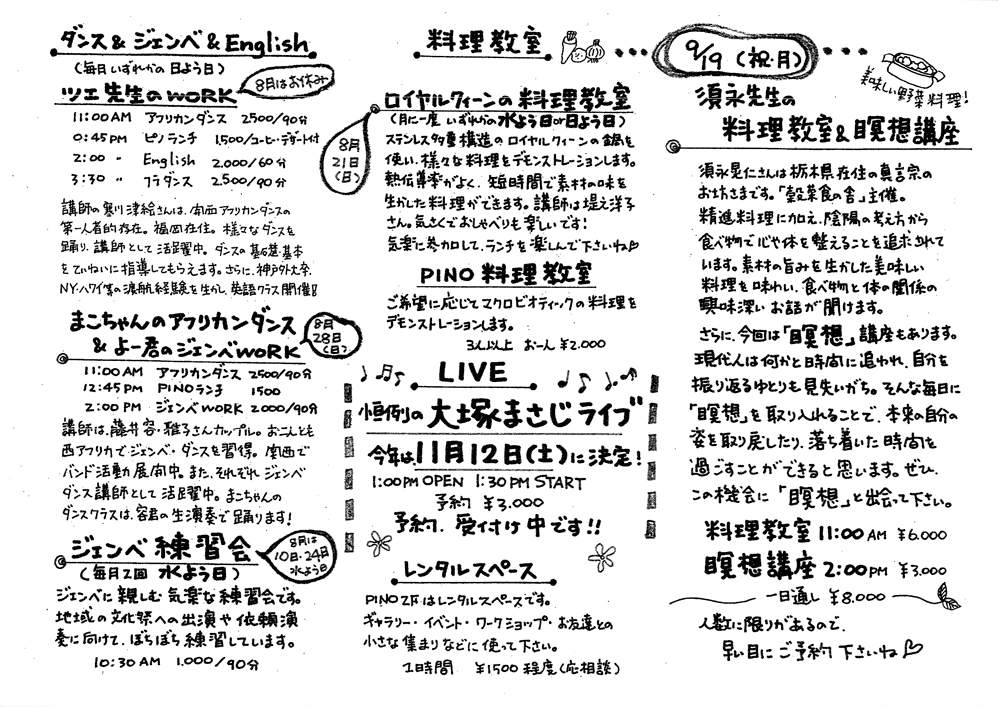 ダンス & ジェンベ & English
(毎月いずれかの日よう日)
8月はお休み
ツエ先生のWORK
11:00AM アフリカンダンス 2500/90分
0:45PM ピノランチ 1,500/コーヒー・デザート付
2:00 〃 English 2.000/60分
3:30 〃 フラダンス 2.500/90分
講師の寒川津絵さんは、関西アフリカンダンスの
第一人者的存在。福岡在住。様々なダンスを
踊り、講師として活躍中。ダンスの基礎・基本
をていねいに指導してもらえます。さらに、神戸外大卒、
NY・ハワイ等の渡航経験を生かし、英語クラス開催!!
まこちゃんのアフリカンダンス
& よー君のジェンベWORK
8月
28日
(日)
11:00AM アフリカンダンス 2500/90分
12:45PM PINOランチ 1500
2:00PM ジェンベWORK 2000/90分
講師は、藤井容・雅子さんカップル。お二人とも
西アフリカでジェンベ・ダンスを習得。関西で
バンド活動展開中。また、それぞれジェンベ
ダンス講師として活躍中。まこちゃんの
ダンスクラスは、容君の生演奏で踊ります!
ジェンベ練習会
(毎月2回 水よう日)
8月は
10日・24日
水よう日
ジェンベに親しむ気楽な練習会です。
地域の文化祭への出演や依頼演
奏に向けて、ぼちぼち練習しています。
10:30AM 1.000/90分
料理教室
ロイヤルクィーンの料理教室
(月に一度 いずれかの水よう日or日よう日)
8月
21日
(日)
ステンレス多重構造のロイヤルクィーンの鍋を
使い、様々な料理をデモンストレーションします。
熱伝導率がよく、短時間で素材の味を
生かした料理ができます。講師は堤え洋子
さん。気さくでおしゃべりも楽しいです!
気楽に参加して、ランチを楽しんで下さいね♡
PINO 料理教室
ご希望に応じてマクロビオティックの料理を
デモンストレーションします。
3人以上 お一人 ¥2.000
LIVE
恒例の大塚まさじライブ
今年は、11月12日(土)に決定!
1:00PM OPEN 1:30PM START
予約 ¥3,000
予約、受付け中です!!
レンタルスペース
PINO 2Fはレンタルスペースです。
ギャラリー・イベント・ワークショップ・お友達との
小さな集まりなどに使って下さい。
1日時間 ¥1500 程度(応相談)
9/19 (祝・月)
美味しい野菜料理!
須永先生の
料理教室&瞑想講座
須永晃仁さんは栃木県在住の真言宗の
お坊さまです。「穀菜食の舎」主催。
精進料理に加え、陰陽の考え方から
食べ物で心や体を整えることを追求されて
います。素材の旨みを生かした美味しい
料理を味わい、食べ物と体の関係の
興味深いお話が聞けます。
さらに、今回は「瞑想」講座もあります。
現代人は何かと時間に追われ、自分を
振り返るゆとりも見失いがち。そんな毎日に
「瞑想」を取り入れることで、本来の自分の
姿を取り戻したり、落ち着いた時間を
過ごすことができると思います。ぜひ、
この機会に「瞑想」と出会って下さい。
料理教室 11:00AM ¥6.000
瞑想講座 2:00PM ¥3.000
一日通し ¥8.000
人数に限りがあるので、
早い目にご予約下さいね♡